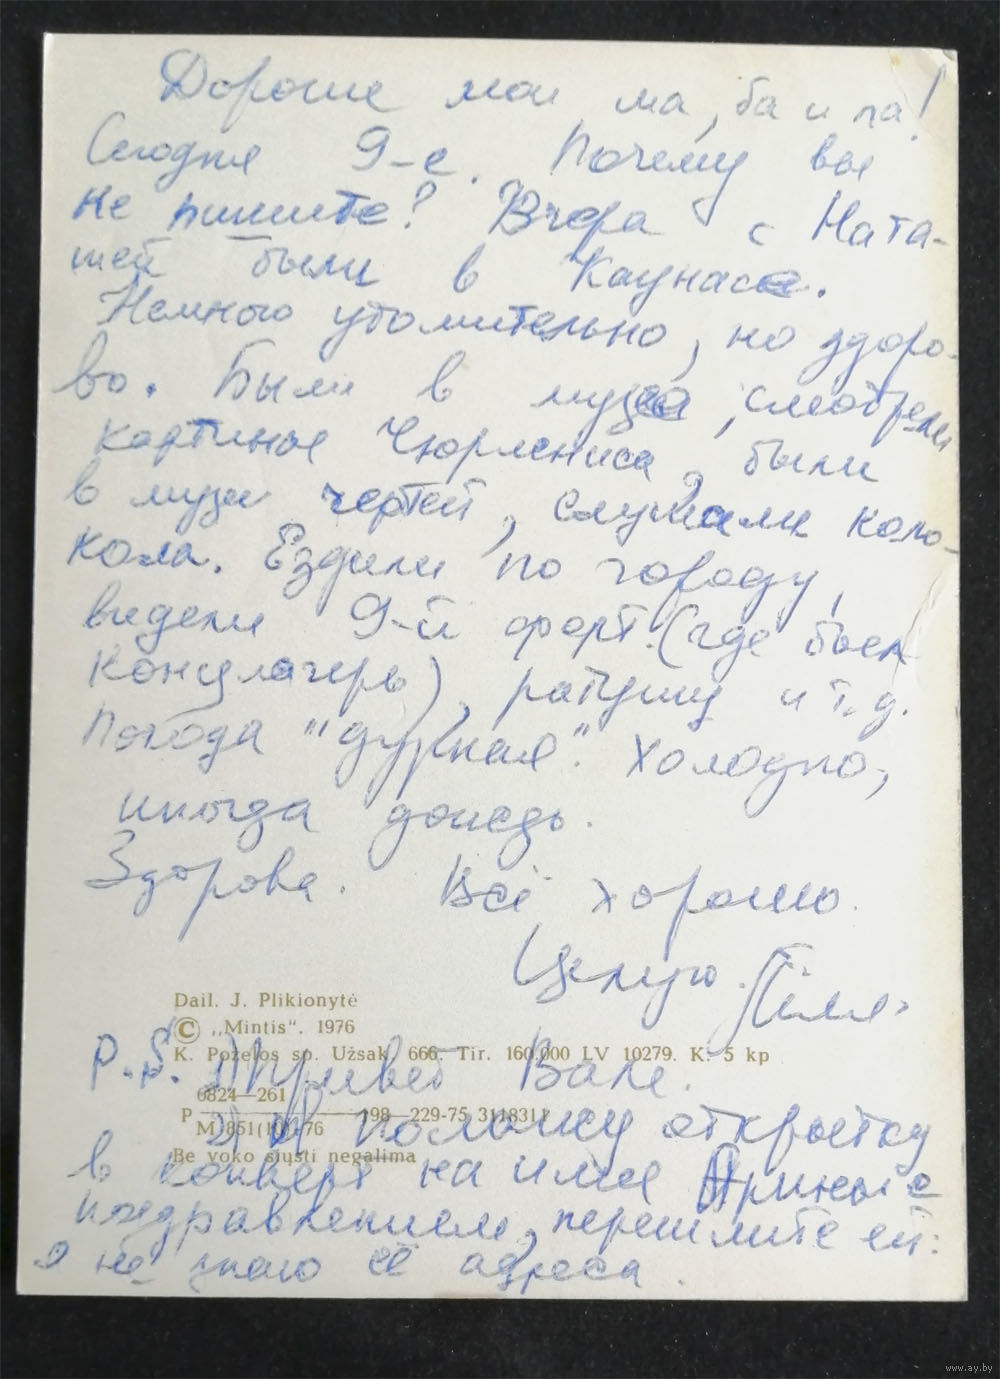 Дорогие мои ма, ба и па!
Сегодня 9-е. Почему вы
не пишите? Вчера с Ната-
шей были в Каунасе.
Немного утомительно, но здоро-
во. Были в музее, смотрели
картины Чюрлениса, были
в музеи чертей, слушали коло-
кола. Ездили по городу,
видели 9-й форт (где был
концлагерь), ратушу и т.д.
Погода "дурная". Холодно,
иногда дождь.
Здорова. Всё хорошо.
Целую.
Dail. J. Plikionytė
© „Mintis". 1976
K. Poželos sp. Užsak. 666. Tir. 160.000 LV 10279. K. 5 kp
P.S. 1) Привет Вале.
6824—261
P 98—229-75 3118311
M 851(10)-76
2) Я положу открытку
Be voko siųsti negalima
в конверт на имя Арины с
поздравлением, перешлите ей:
я не знаю её адреса.
www.ay.by